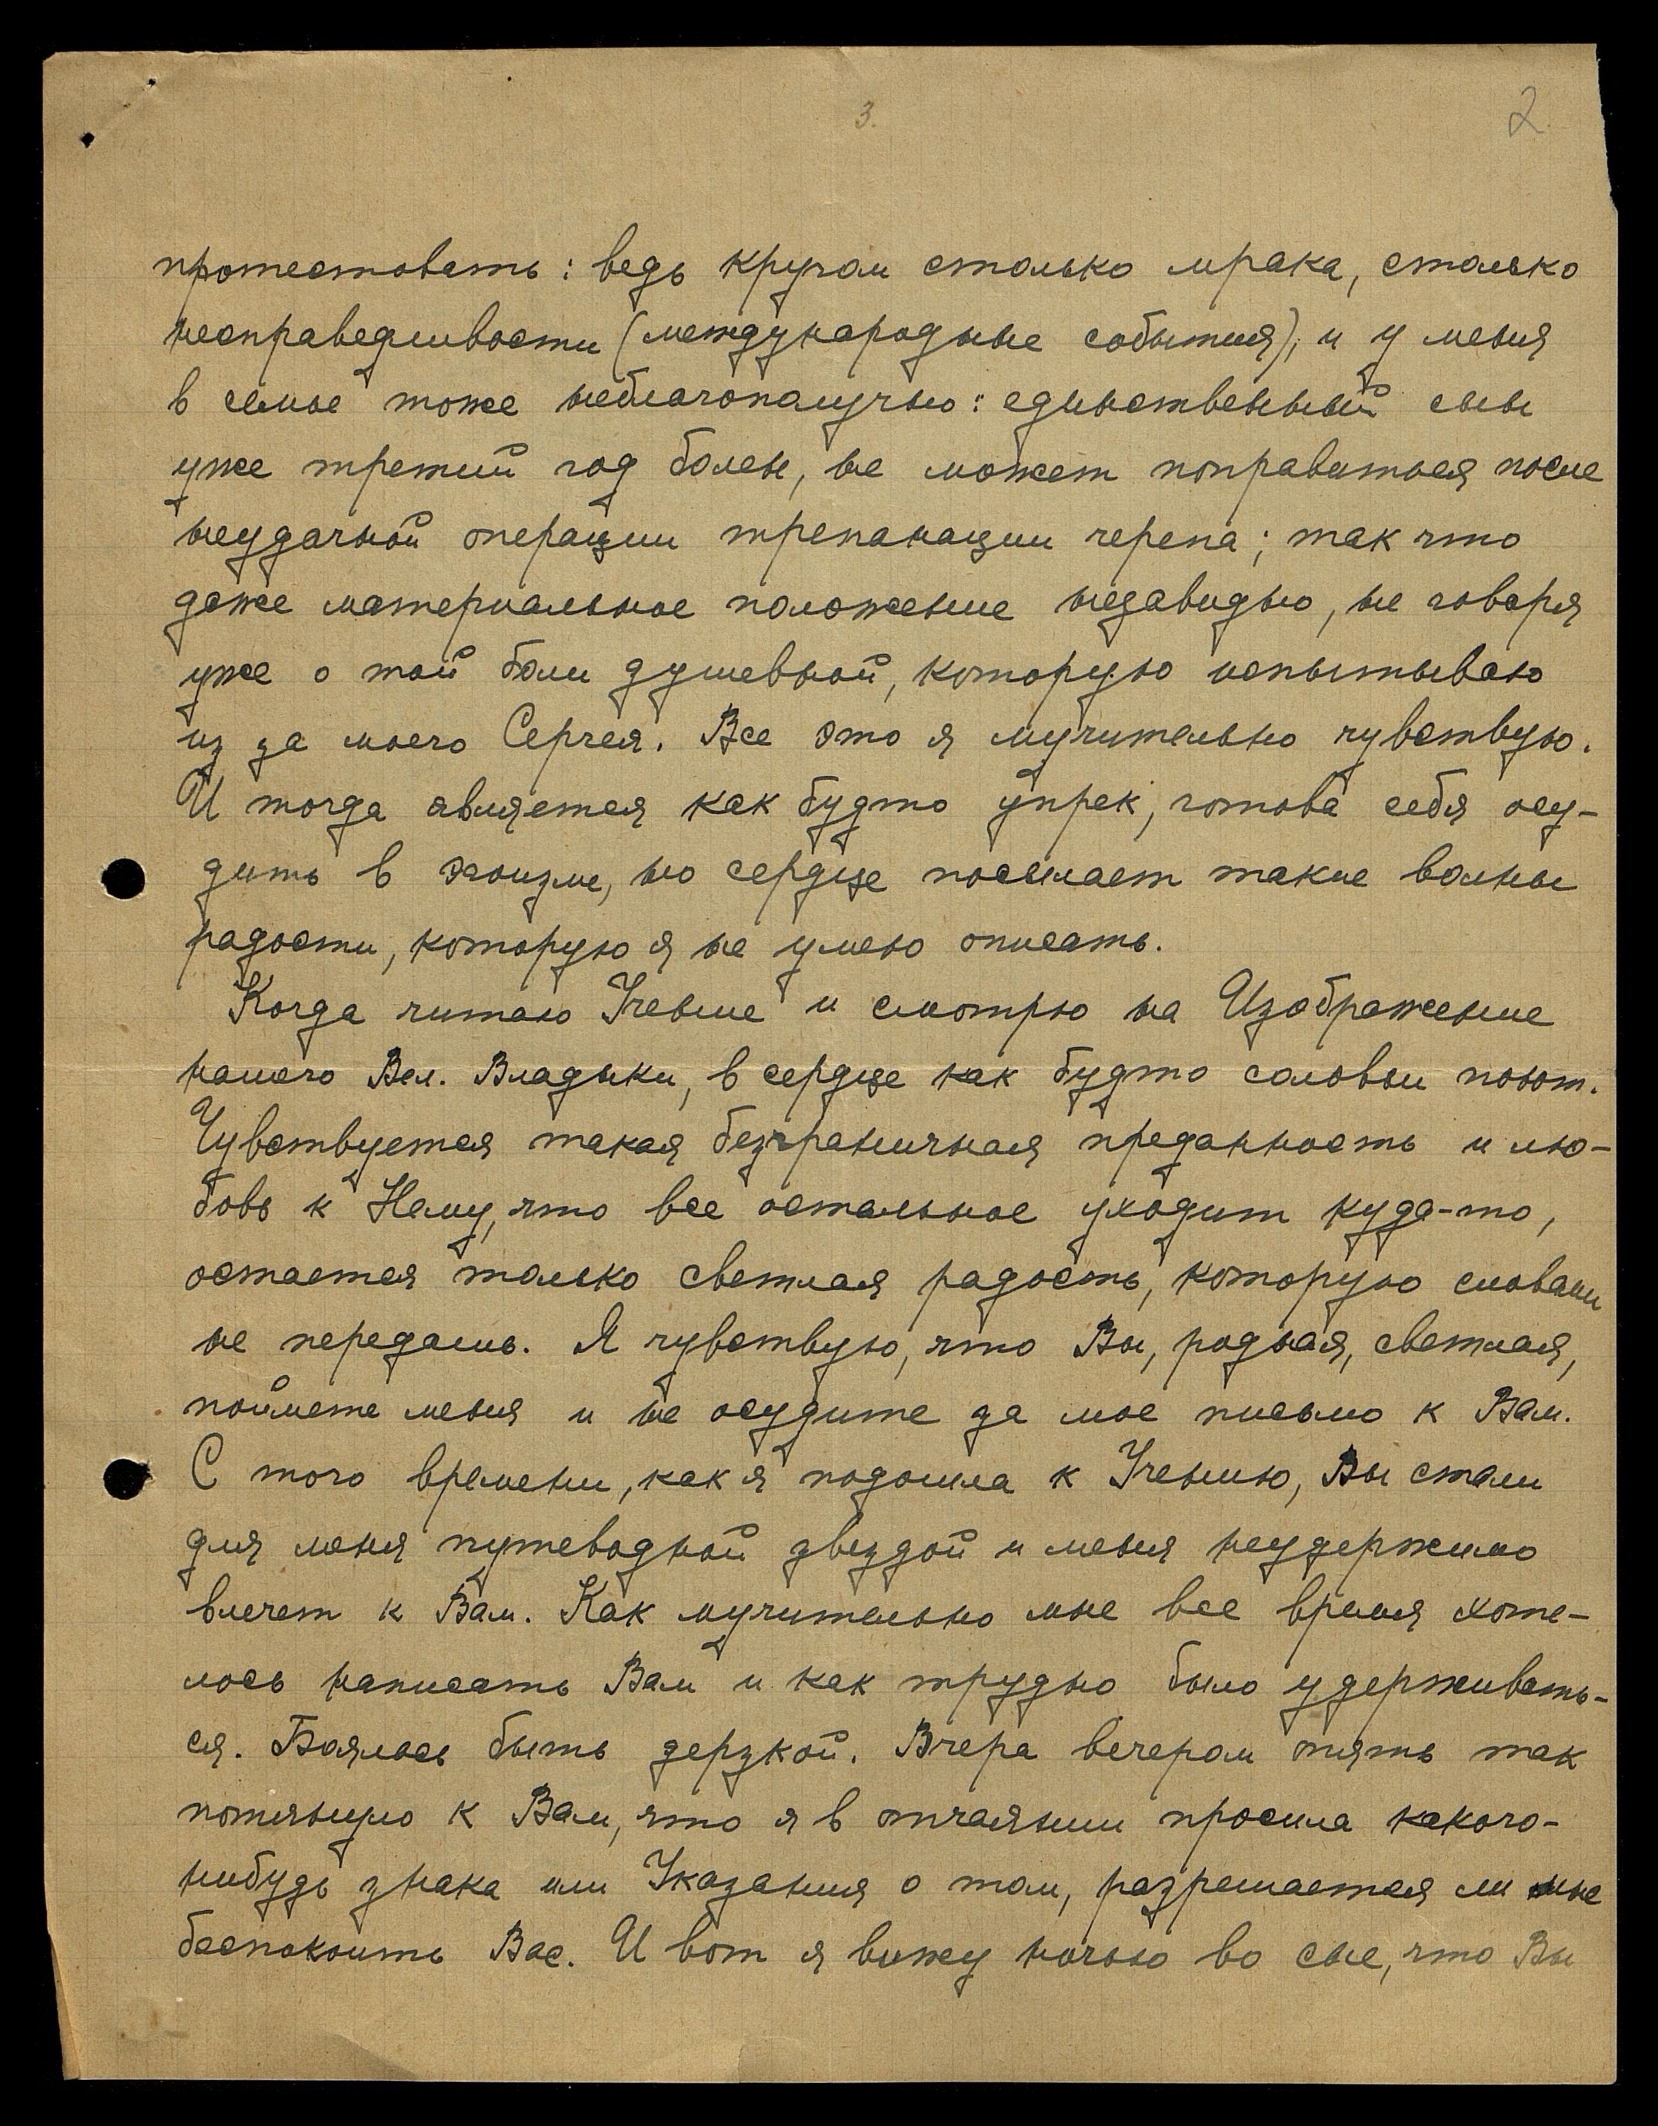 3.
2
протестовать: ведь кругом столько мрака, столько
несправедливости (международные события), и у меня
в семье тоже неблагополучно: единственный сын
уже третий год болен, не может поправиться после
неудачной операции трепанации черепа; так что
даже материальное положение незавидно, не говоря
уже о той боли душевной, которую испытываю
из за моего Сергея. Все это я мучительно чувствую.
И тогда является как будто упрек, готова себя осу-
дить в эгоизме, но сердце посылает такие волны
радости, которую я не умею описать.
Когда читаю Учение и смотрю на Изображение
нашего Вел. Владыки, в сердце как будто соловьи поют.
Чувствуется такая безграничная преданность и лю-
бовь к Нему, что все остальное уходит куда-то,
остается только светлая радость, которую словами
не передашь. Я чувствую, что Вы, родная, светлая,
поймете меня и не осудите за мое письмо к Вам.
С того времени, как я подошла к Учению, Вы стали
для меня путеводной звездой и меня неудержимо
влечет к Вам. Как мучительно мне все время хоте-
лось написать Вам и как трудно было удерживать-
ся. Боялась быть дерзкой. Вчера вечером опять так
потянуло к Вам, что я в отчаянии просила какого-
нибудь знака или Указания о том, разрешается ли мне
беспокоить Вас. И вот я вижу ночью во сне, что Вы